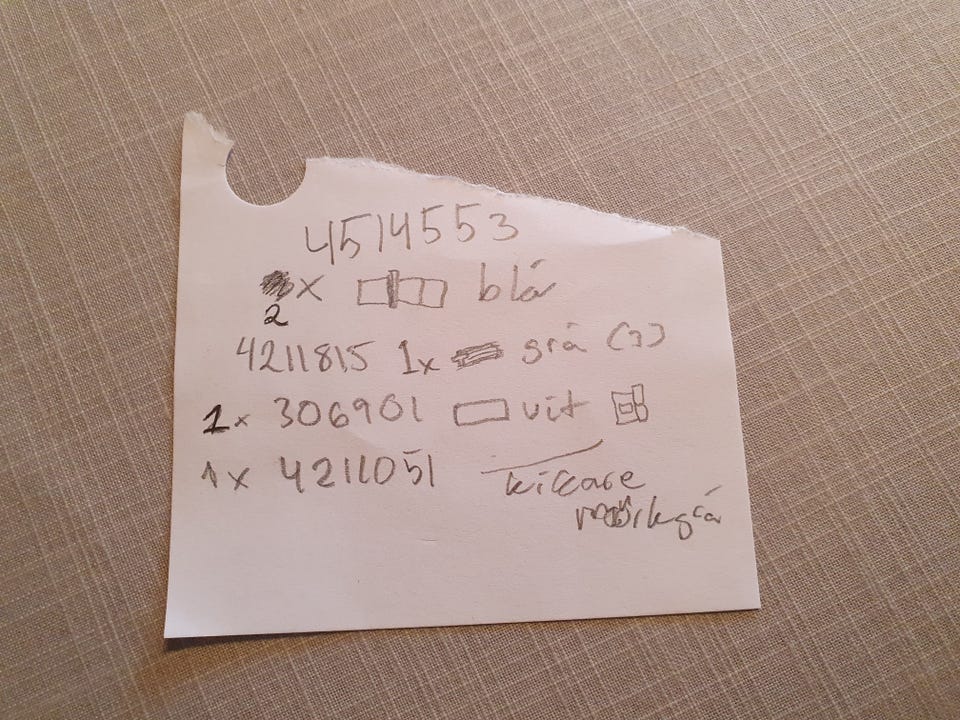 4514553
2x blå
4211815 1x grå (3)
1x 306901 vit
1x 4211051 kikare
mörkgrå